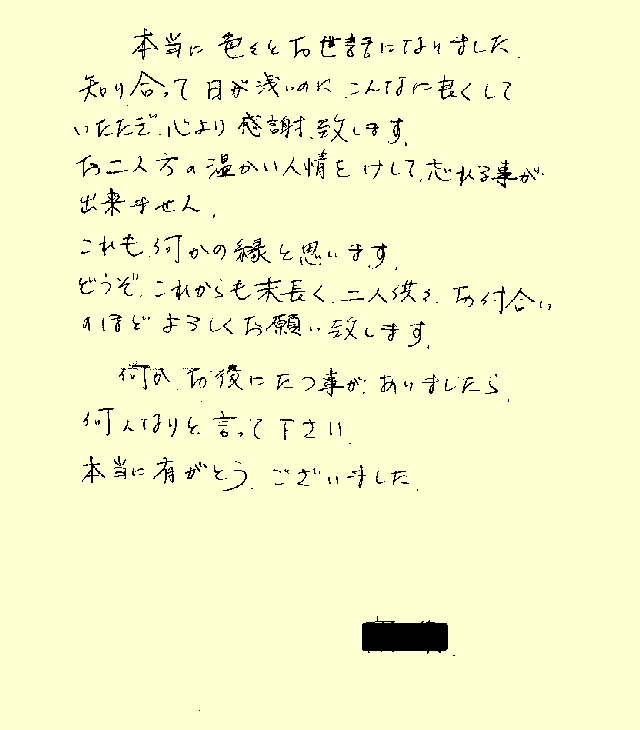 本当に色々とお世話になりました.
知り合って日が浅いのに、こんなに良くして
いただき、心より感謝、致します.
お二人方の温かい人情をけして、忘れる事が
出来ません.
これも、何かの縁と思います.
どうぞ、これからも末長く、二人供々、お付合い
のほどよろしくお願い致します.
何か、お役にたつ事が、ありましたら、
何んなりと、言って下さい.
本当に有がとう、ございました.